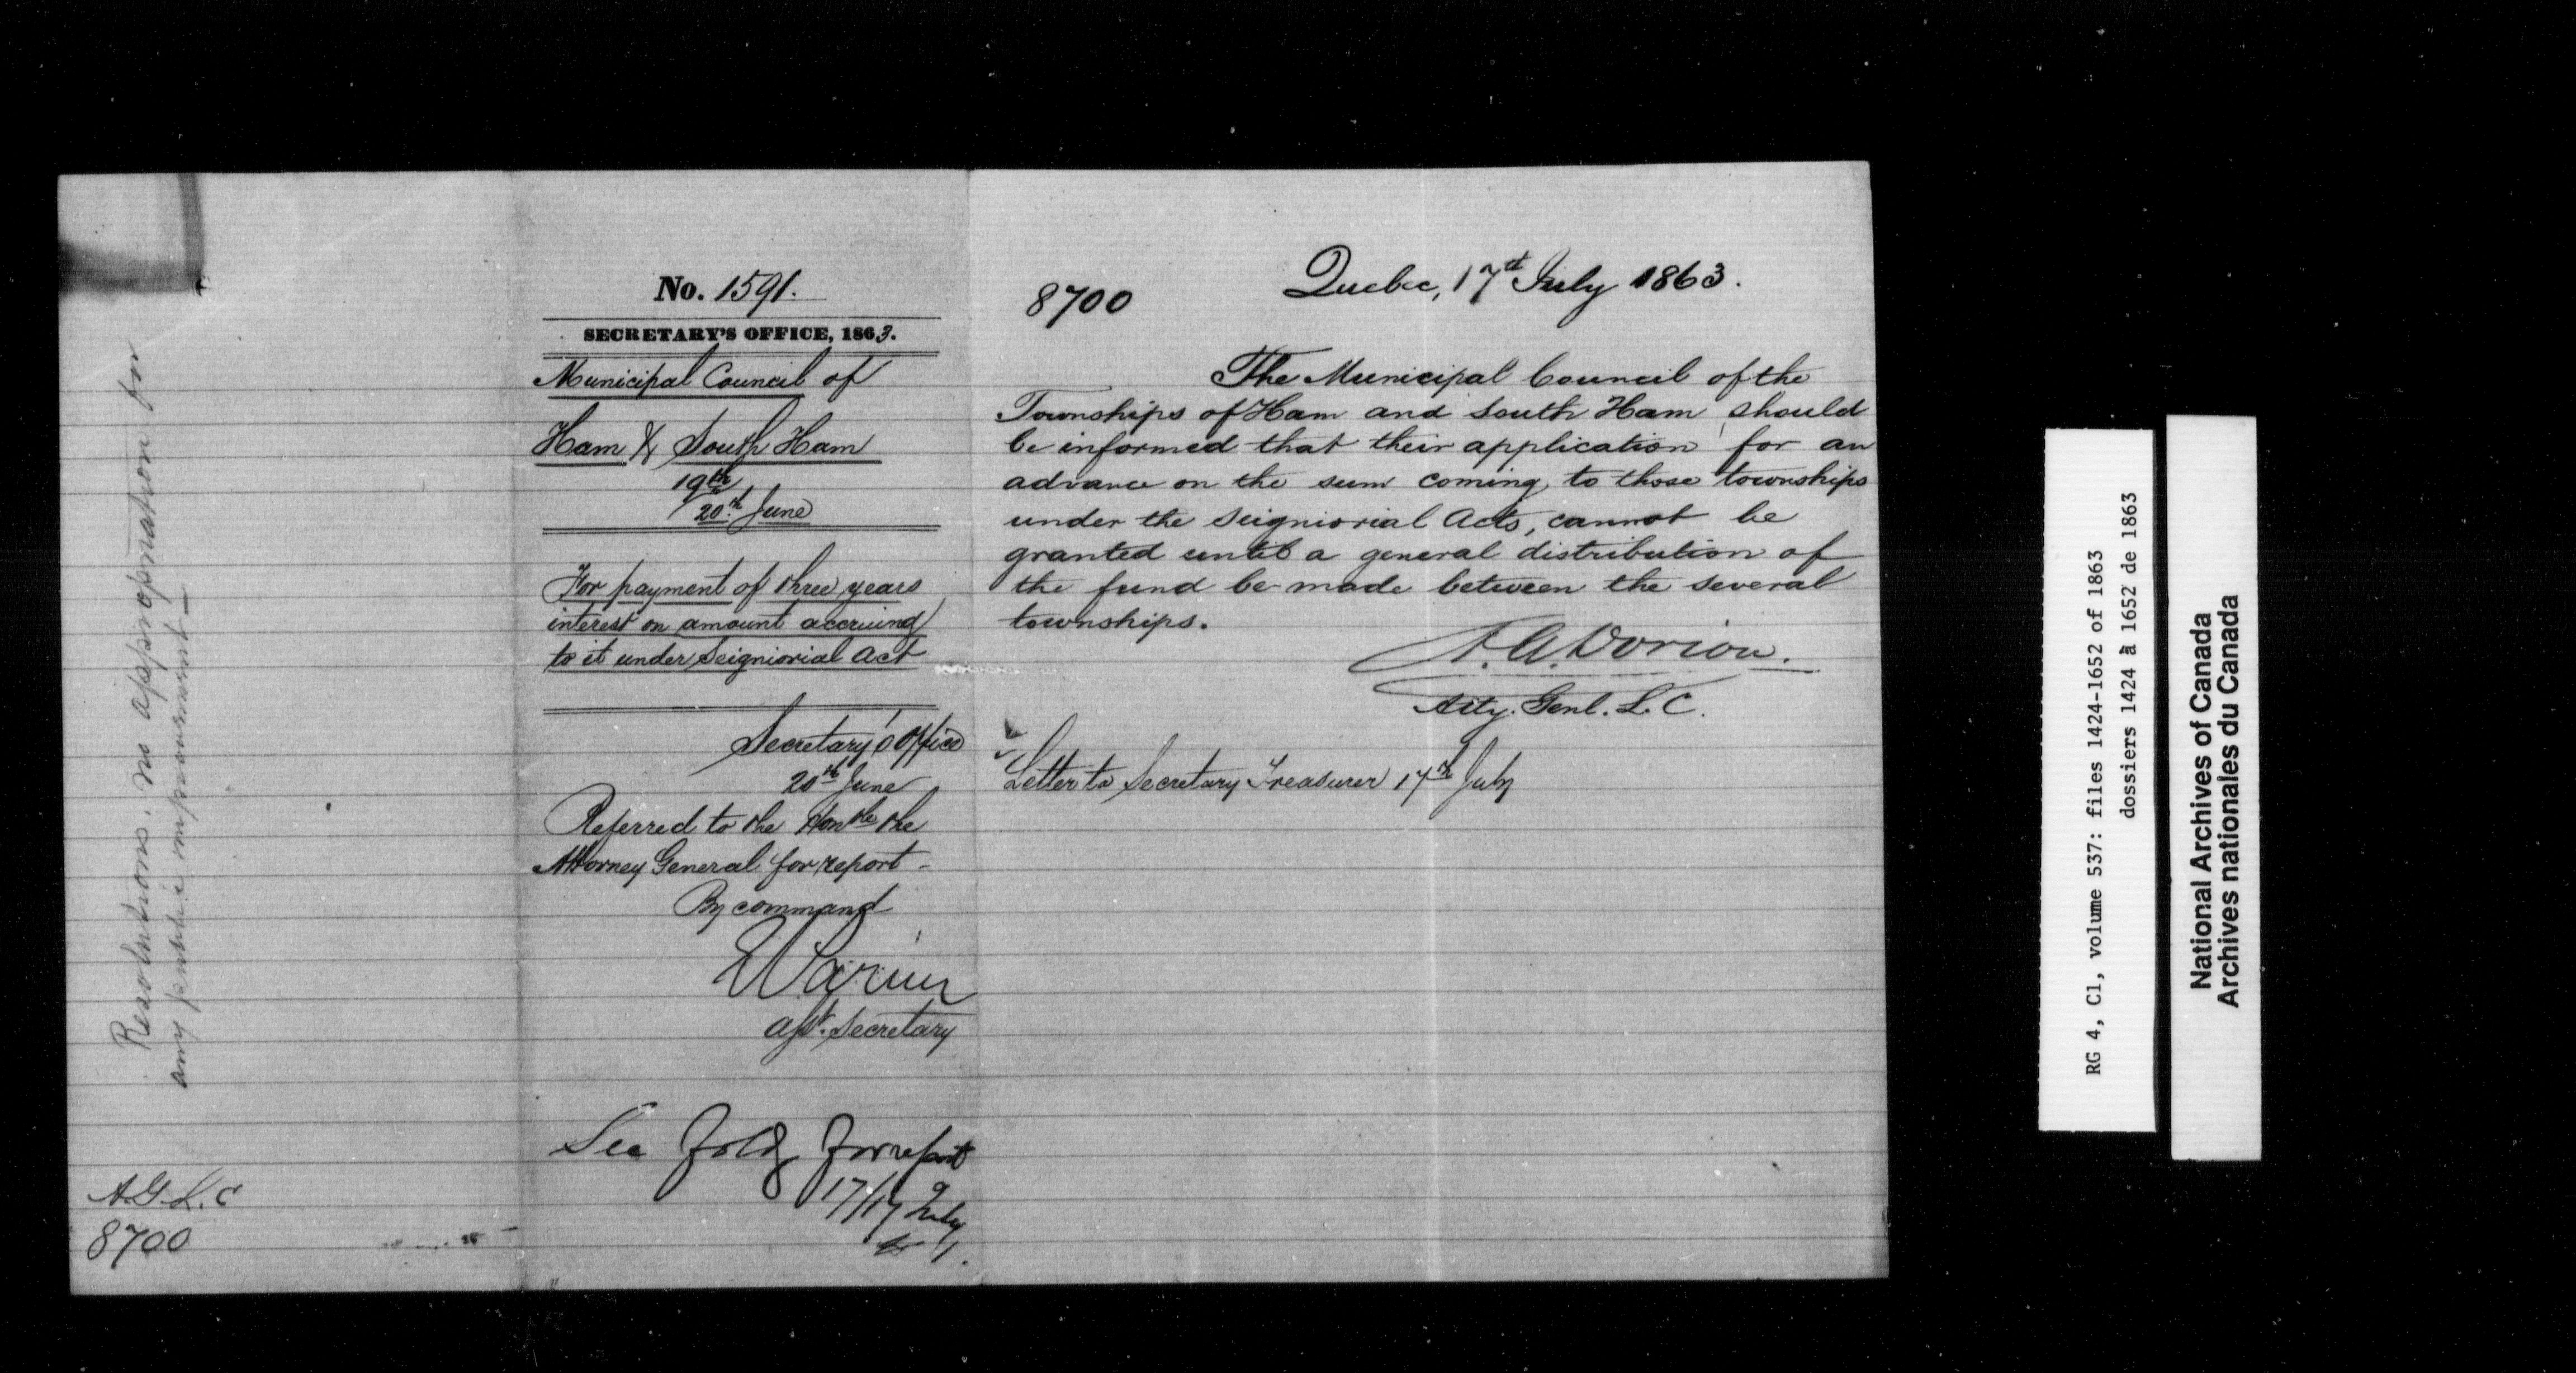 Resolutions. no appropriation for
any public improvement
A.G.L.C
8700
No. 1591.
SECRETARY'S OFFICE, 1863.
Municipal Council of
Ham & South Ham
19th
20th June
For payment of three years
interest on amount accruing
to it under Seigniorial Act
Secretary's Office
20th June
Referred to the Honble the
Attorney General for report -
By command
Asst. Secretary
See fold for report
17/17 July
8700
Quebec, 17th July 1863.
The Municipal Council of the
Townships of Ham and South Ham should
be informed that their application for an
advance on the sum coming to those townships
under the Seigniorial Acts, cannot be
granted until a general distribution of
the fund be made between the several
townships.
A. A. Dorion.
Atty. Genl. L. C.
Letter to Secretary Treasurer 17th July
RG 4, C1, volume 537: files 1424-1652 of 1863
dossiers 1424 à 1652 de 1863
National Archives of Canada
Archives nationales du Canada